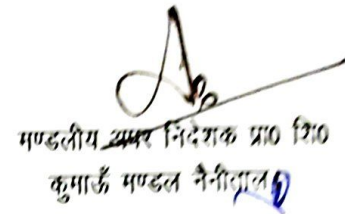 मण्डलीय अपर निदेशक प्रा० शि०
कुमाऊँ मण्डल नैनीताल